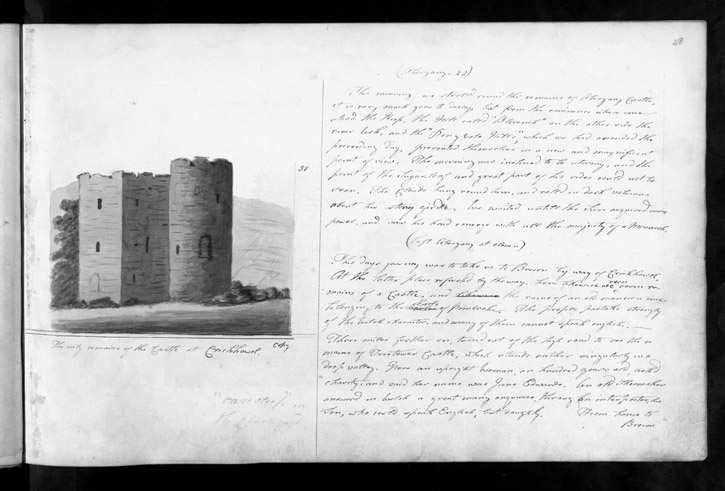 48
(Abergany. 22)
This morning we strolled round the remains of Abergany Castle,
it is very much gone to decay, but from the eminence where once
stood the Keep, the Forts called Blorench on the other side the
river Usk, and the "Peny vale Hills," which we had ascended the
preceding day, presented themselves in a new and magnificent
point of view. The morning was inclined to be stormy, and the
point of the Sugar loaf and great part of his sides could not be
seen, The Clouds hung round them, and rolled in dark volumes
about his We waited until the Sun acquired more
power, and saw his head emerge with all the majesty of a Monarch.
(Left Abergany at eleven)
This days journey was to take us to Brecon by way of Crickhowel.
At the latter place refreshed by the way. here are seen re=
mains of a Castle, and the ruins of an old mansion once
belonging to the Earls of Pembroke. The people partake strongly
of the Welch character, and many of them cannot speak english. —
Three miles further on, turned out of the high road to see the re
mains of Tretower Castle, which stands rather singularly in a
deep valley. Here an upright woman, an hundred years old asked
charity; and said her name was Jane Edwards. An old Shoemaker
answered in Welch a great many enquiries, through an interpreter, his
Son, who could speak English, but roughly. From hence to
Brecon
38
The only remains of the Castle at Crickhowel. Copy